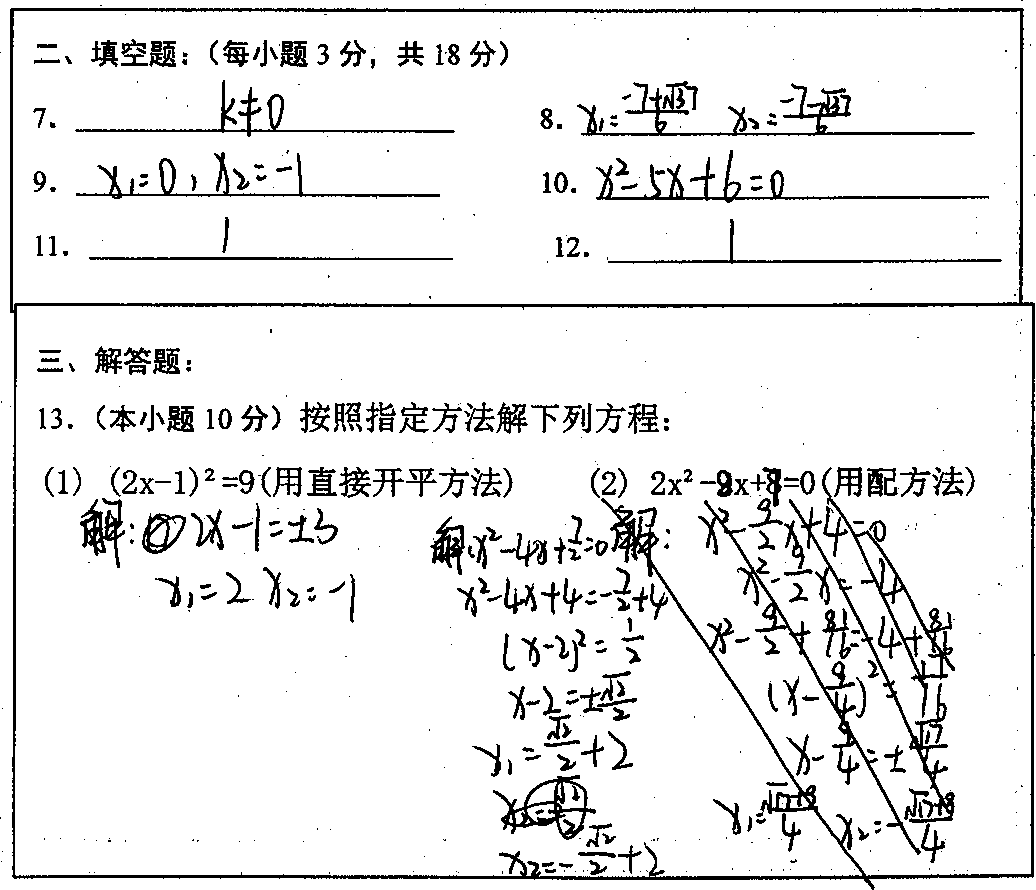 二、填空题：（每小题 3 分，共 18 分）
7. k≠0 8. x₁=(-7+√37)/6 x₂=(-7-√37)/6
9. x₁=0，x₂=-1 10. x²-5x+6=0
11. 1 12. 1
三、解答题：
13.（本小题 10 分）按照指定方法解下列方程：
(1) (2x-1)²=9(用直接开平方法) (2) 2x²-8x+7=0(用配方法)
解: 2x-1=±3
x₁=2 x₂=-1
解: x²-4x+7/2=0
x²-4x+4=-7/2+4
(x-2)²=1/2
x-2=±√2/2
x₁=√2/2+2
x₂=-√2/2+2
解: x²-9/2x+4=0
x²-9/2x=-4
x²-9/2+81/16=-4+81/16
(x-9/4)²=17/16
x-9/4=±√17/4
x₁=(√17+9)/4 x₂=-(√17+9)/4